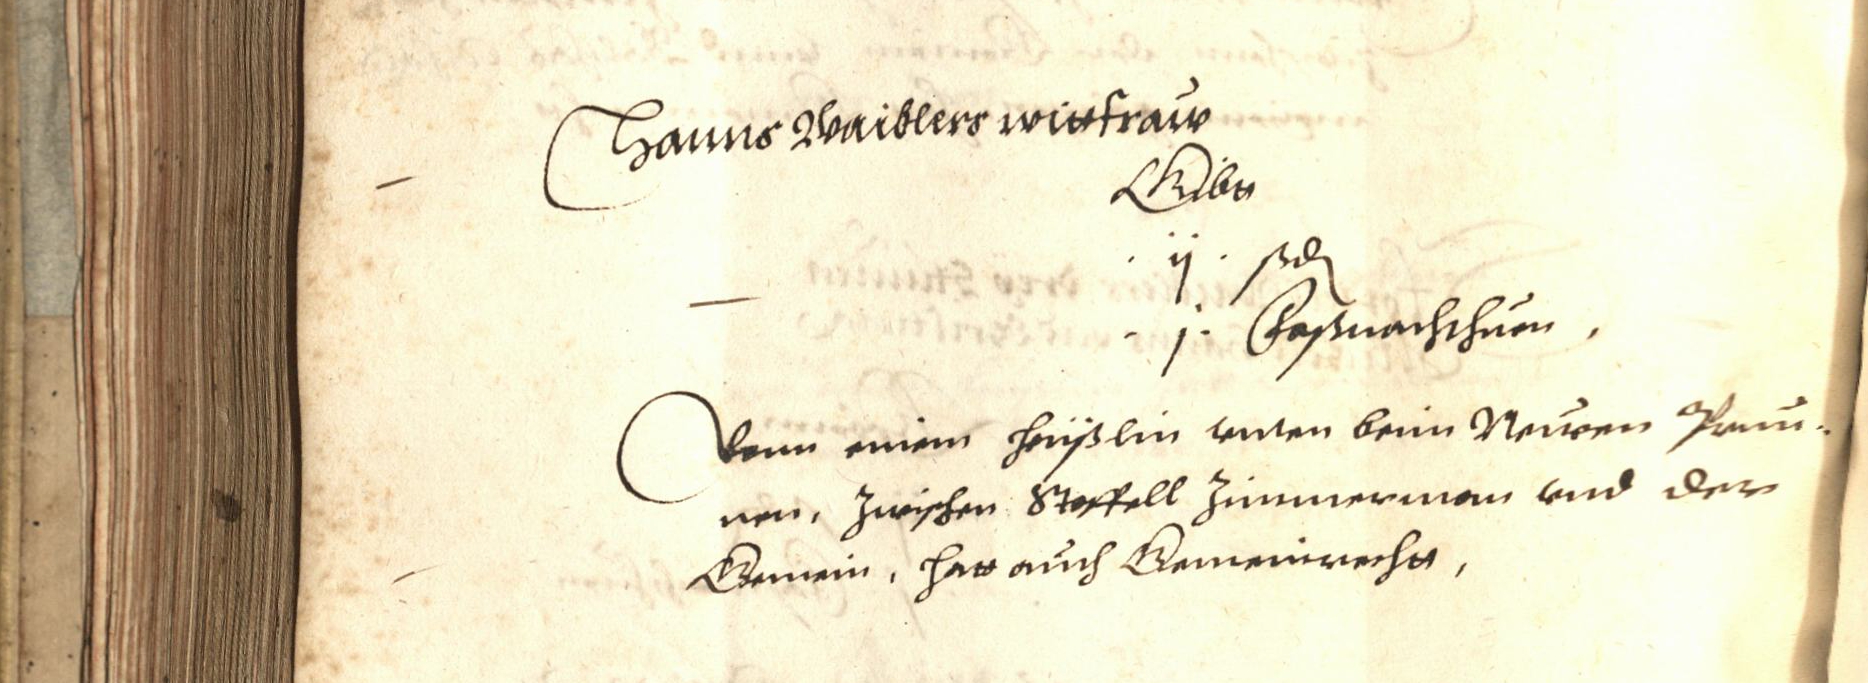 Hanns Waiblers wittfraw
Gibtt
. ij . ßd
. j . Faßnachthuen ,
Vonn einem heüßlin unden beim Neuwen Prun-
nen, Zwischen Stoffell Zimmerman und der
Gemein, hatt auch Gemeinrechtt ,